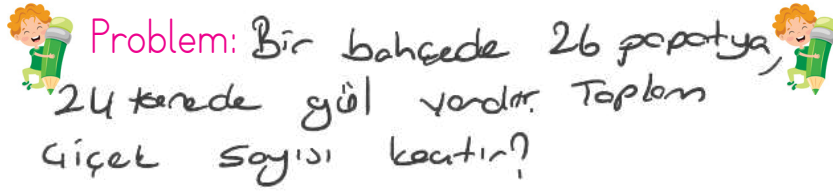 Problem: Bir bahçede 26 papatya,
24 tanede gül vardır. Toplam
Çiçek sayısı kaçtır?